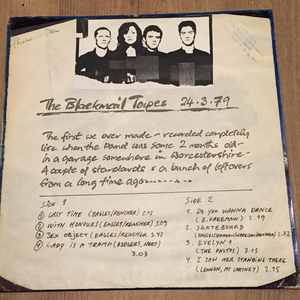 The Blackmail Tapes 24.3.79
The first we ever made - recorded completely
live when the band was some 2 months old -
in a garage somewhere in Worcestershire -
A couple of standards & a bunch of leftovers
from a long time ago
SIDE 1
① LAST TIME (EAGLES/RENCHER) 2.05
② WITH HONOURS (EAGLES/RENCHER) 3.09
③ SEX OBJECT (EAGLES/RENCHER) 3.42
④ LADY IS A TRAMP (RODGERS, HART)
3.03
SIDE 2
1. DO YOU WANNA DANCE
(B. FREEMAN) 2.19
2. SKATEBOARD
2.32
3. EVELYN 1
(THE PHOTOS) 3.03
4. I SAW HER STANDING THERE
(LENNON, McCARTNEY) 2.25